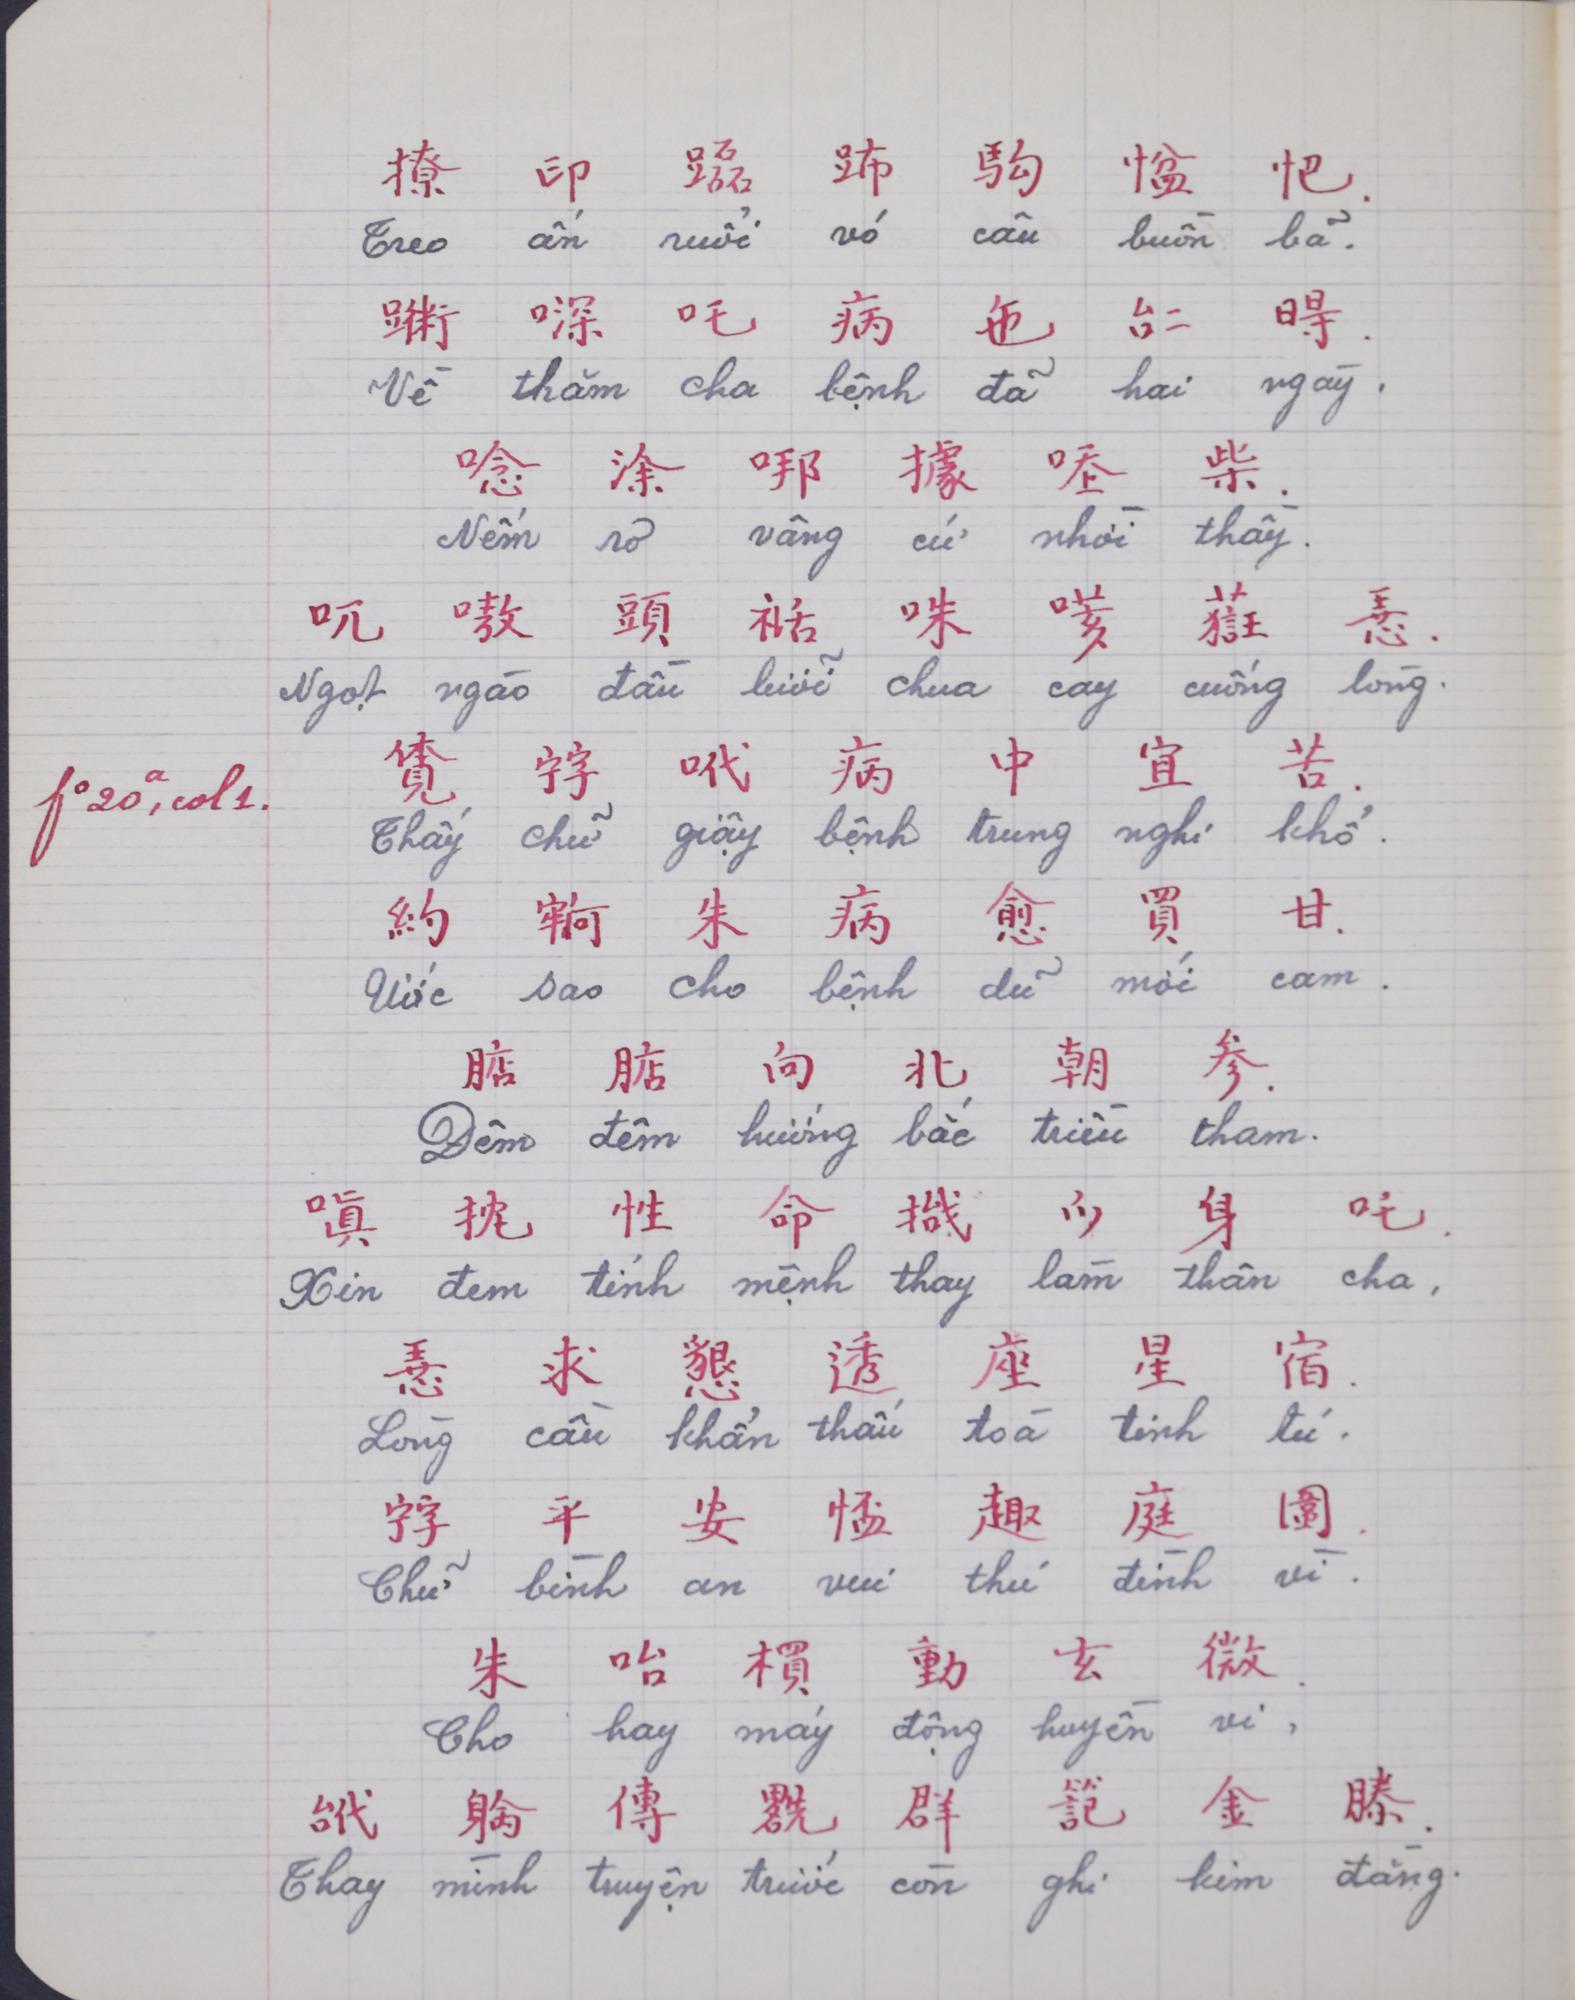 撩 印 𨇒 𨂔 駒 㥪 㤆.
Treo ấn ruổi vó câu buồn bã.
𨖲 㗖 吒 病 㐌 𠄩 𣈗.
Về thăm cha bệnh đã hai ngày.
唸 涂 㖫 據 㗂 柴.
Nếm rõ vâng cứ nhời thầy.
吪 嗷 頭 𥚇 咮 𠹽 𦵠 𢚸.
Ngọt ngào đầu lưỡi chua cay cuống lòng.
f° 20ª, col 1.
𧡊 𡨸 𠰺 病 中 宜 苦.
Thấy chữ giậy bệnh trung nghi khổ.
約 𡫡 朱 病 愈 買 甘.
Ước sao cho bệnh dũ mới cam.
𣎀 𣎀 向 北 朝 参.
Đêm đêm hướng bắc triều tham.
嗔 抌 性 命 𢫝 𫜵 身 吒.
Xin đem tính mệnh thay làm thân cha,
𢚸 求 懇 透 座 星 宿.
Lòng cầu khẩn thấu toà tinh tú.
𡨸 平 安 𢝙 趣 庭 圍.
Chữ bình an vui thú đình vi.
朱 咍 槓 動 玄 微.
Cho hay máy động huyền vi,
𠊝 𨉟 傳 𠓀 群 𥱬 金 滕.
Thay mình truyện trước còn ghi kim đằng.